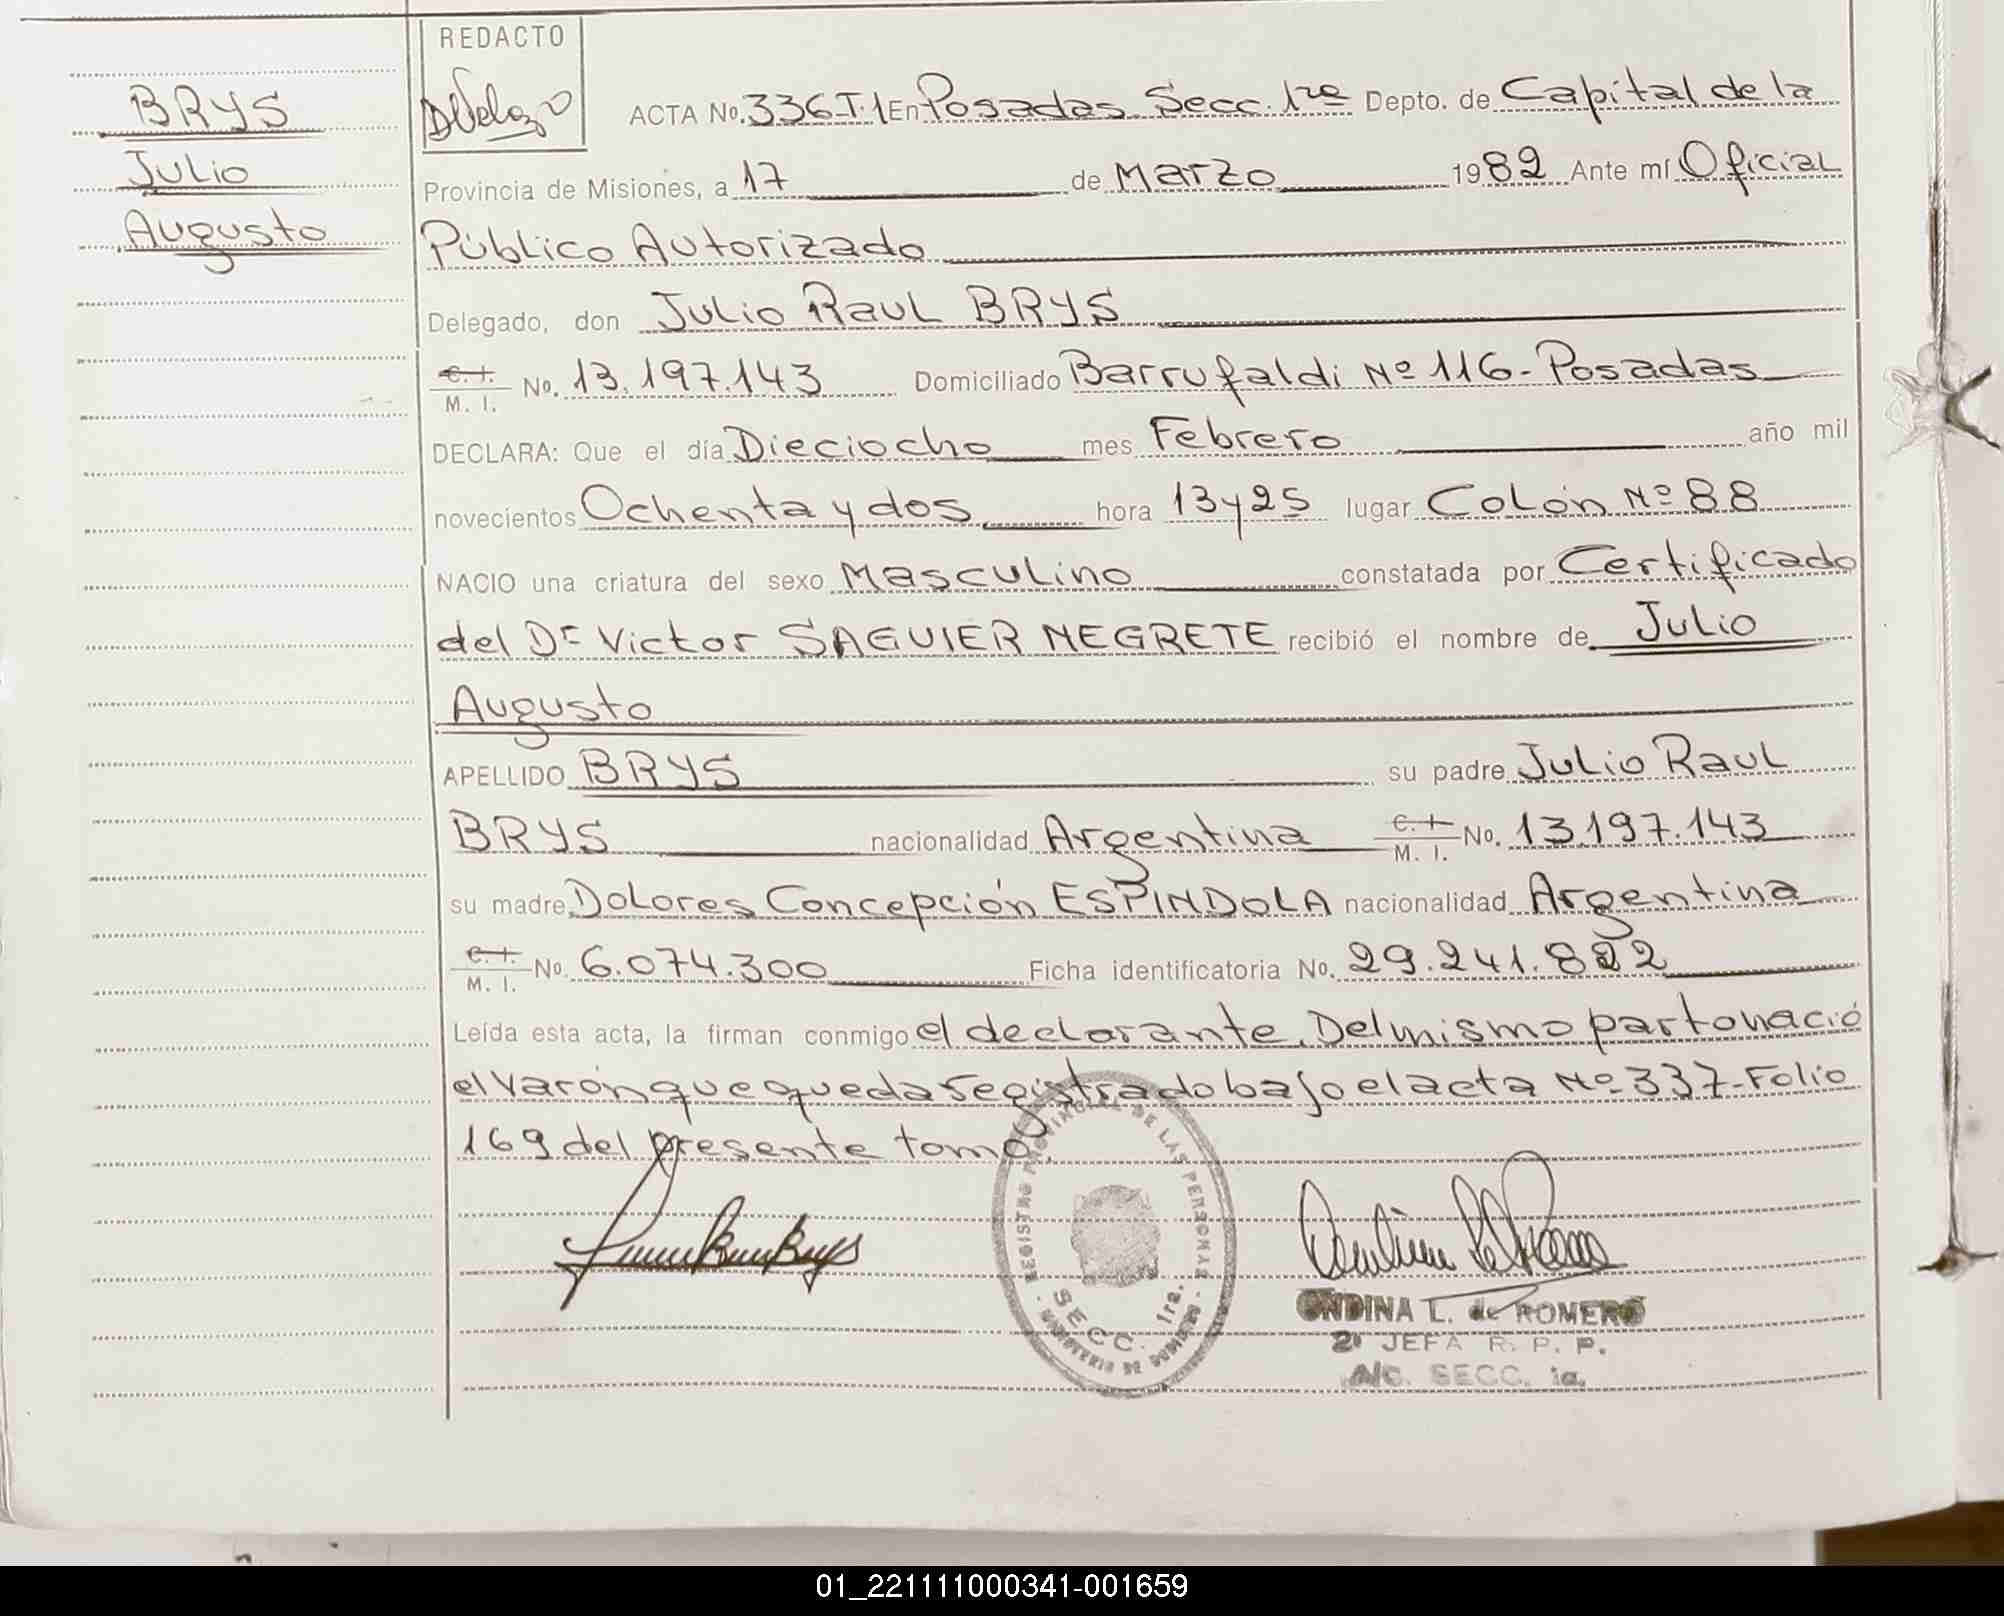 REDACTO
BRYS
Julio
Augusto
ACTA No. 336-T.1 En Posadas Secc. 1ra Depto. de Capital de la
Provincia de Misiones, a 17 de Marzo 1982 Ante mí Oficial
Público Autorizado
Delegado, don Julio Raul BRYS
C. I.
M. I. No. 13.197.143 Domiciliado Barrufaldi Nº 116 - Posadas
DECLARA: Que el día Dieciocho mes Febrero año mil
novecientos Ochenta y dos hora 13 y 25 lugar Colón Nº 88
NACIO una criatura del sexo Masculino constatada por Certificado
del Dr Victor SAGUIER NEGRETE recibió el nombre de Julio
Augusto
APELLIDO BRYS su padre Julio Raul
BRYS nacionalidad Argentina C. I.
M. I. No. 13.197.143
su madre Dolores Concepción ESPINDOLA nacionalidad Argentina
C. I.
M. I. No. 6.074.300 Ficha identificatoria No. 29.241.822
Leída esta acta, la firman conmigo el declarante. Del mismo parto nació
el varón que queda registrado bajo el acta Nº 337 - Folio
169 del presente tomo.
REGISTRO PROVINCIAL DE LAS PERSONAS
SECC. 1ra.
MINISTERIO DE GOBIERNO
ONDINA L. de ROMERO
2º JEFA R. P. P.
A/C. SECC. 1a.
01_221111000341-001659